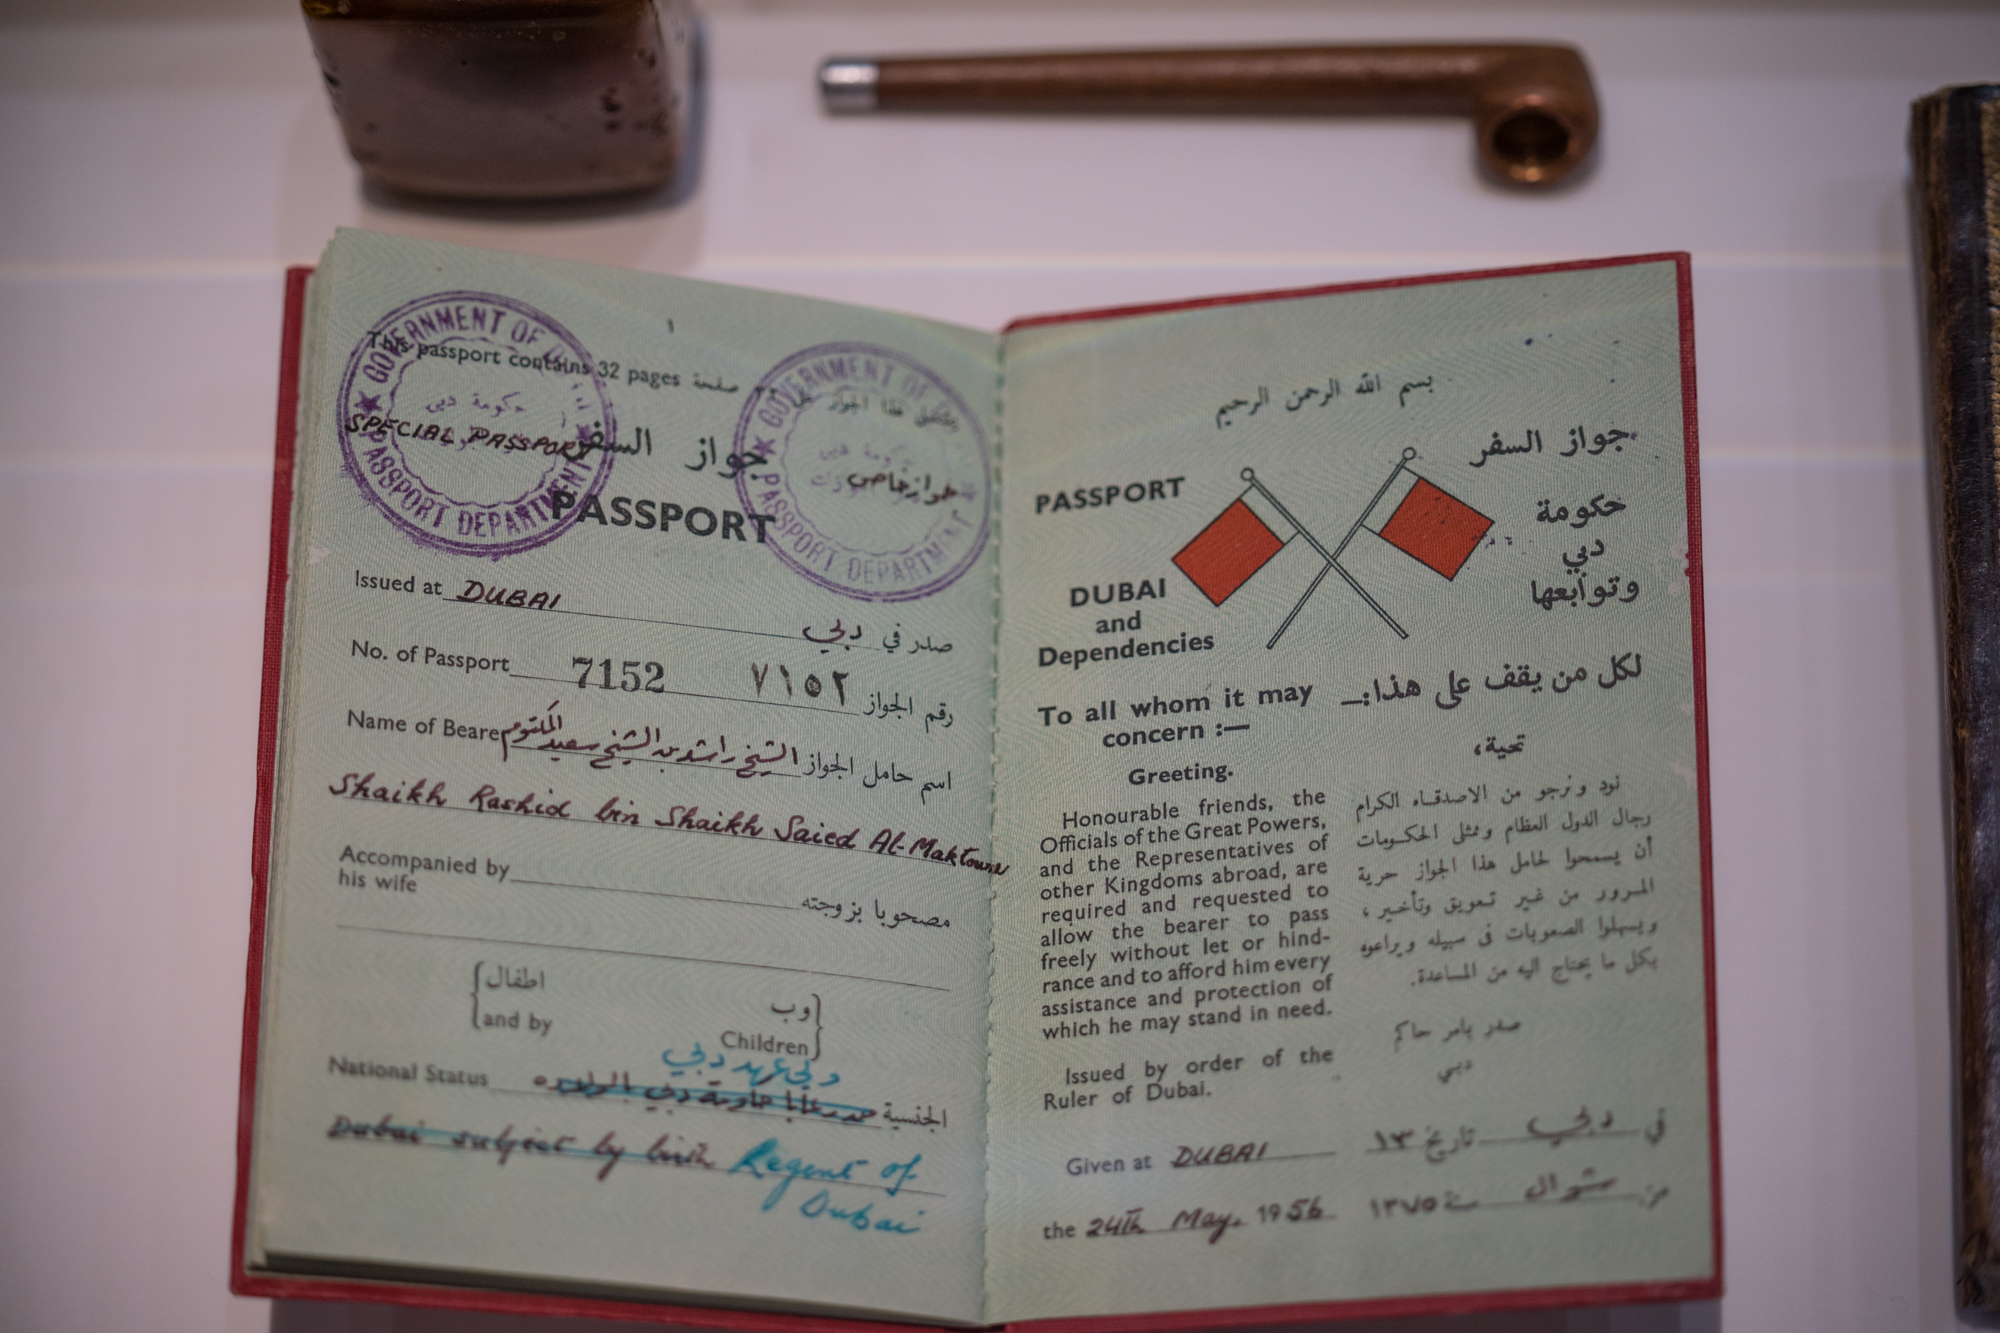 ١
This passport contains 32 pages صفحة ٣٢ يشتمل هذا الجواز على
GOVERNMENT OF
حكومة دبي
PASSPORT DEPARTMENT
GOVERNMENT OF
حكومة دبي
PASSPORT DEPARTMENT
SPECIAL PASSPORT
جواز السفر
جواز خاص
PASSPORT
Issued at DUBAI
صدر في دبي
No. of Passport 7152
٧١٥٢ رقم الجواز
Name of Beare
اسم حامل الجواز الشيخ راشد بن الشيخ سعيد المكتوم
Shaikh Rashid bin Shaikh Saied Al-Maktoum
Accompanied by
his wife
مصحوبا بزوجته
اطفال
وب
and by
Children
ولي عهد دبي
National Status
الجنسية
Dubai subject by birth Regent of
Dubai
بسم الله الرحمن الرحيم
PASSPORT
جواز السفر
حكومة
دبي
وتوابعها
DUBAI
and
Dependencies
To all whom it may
concern :—
لكل من يقف على هذا:—
Greeting.
تحية،
Honourable friends, the
Officials of the Great Powers,
and the Representatives of
other Kingdoms abroad, are
required and requested to
allow the bearer to pass
freely without let or hind-
rance and to afford him every
assistance and protection of
which he may stand in need.
نود ونرجو من الاصدقاء الكرام
رجال الدول العظام وممثلى الحكومات
أن يسمحوا لحامل هذا الجواز حرية
المرور من غير تعويق وتأخير ،
ويسهلوا الصعوبات فى سبيله ويراعوه
بكل ما يحتاج اليه من المساعدة.
Issued by order of the
Ruler of Dubai.
صدر بامر حاكم
دبي
Given at DUBAI
في دبي تاريخ ١٣
the 24th May. 1956
من شوال سنة ١٣٧٥